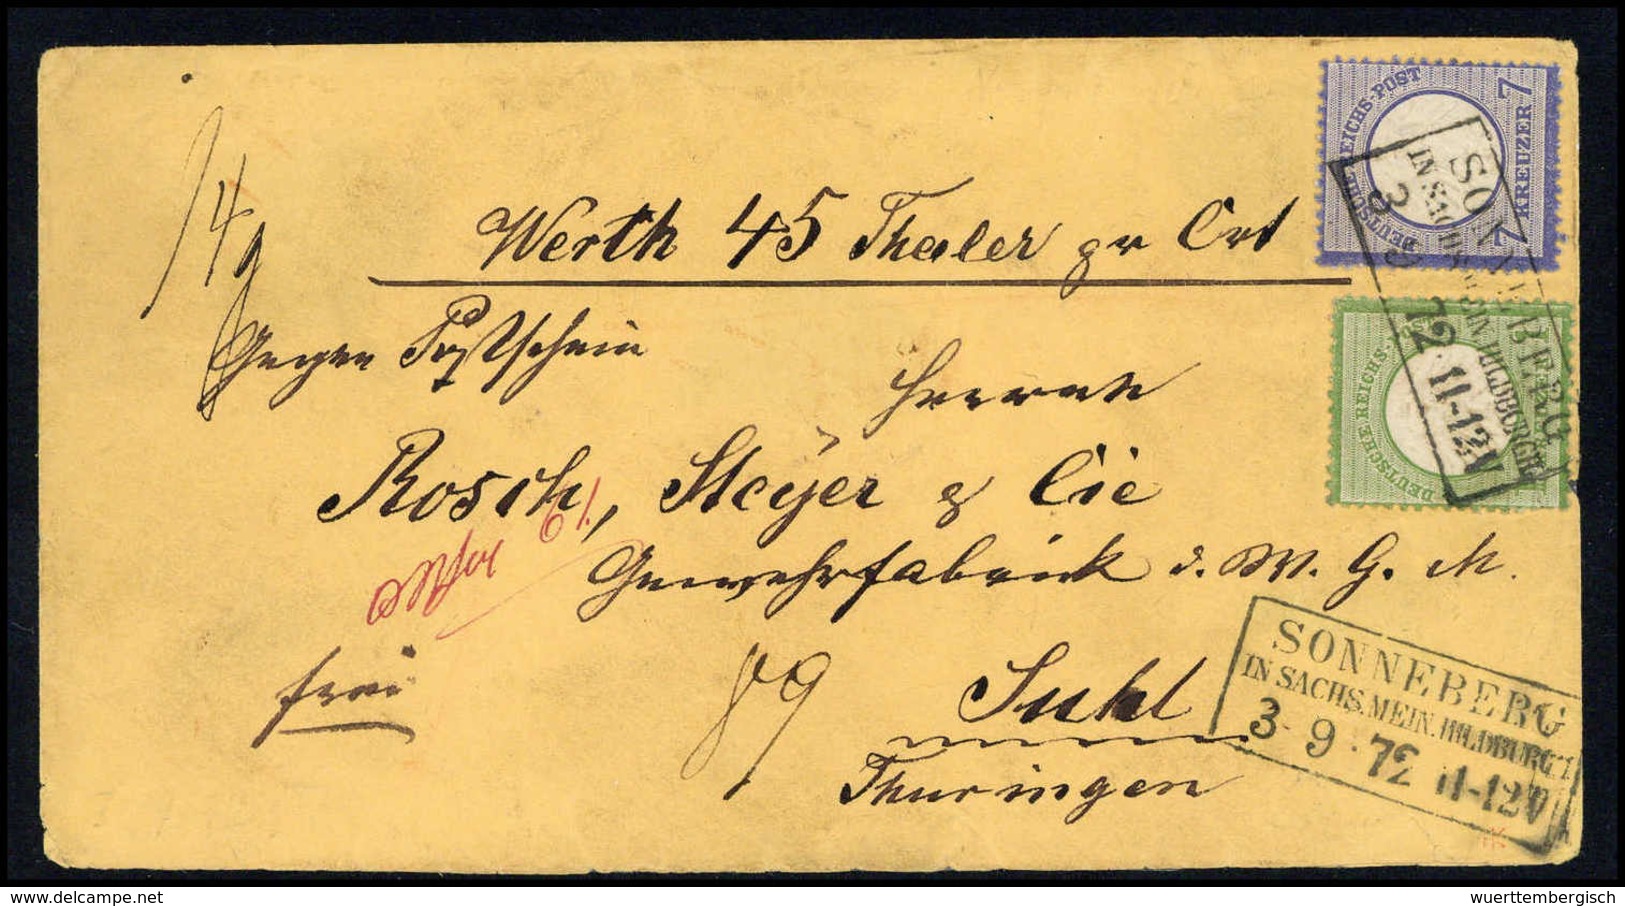 Werth 45 Thaler pr Crt
Gegen Postschein
Herren
Rosch, Steyer & Cie
Gewehrfabrik
W. G. M.
frei
89
Suhl
Thuringen
DEUTSCHE REICHS-POST
7 KREUZER 7
SONNEBERG
IN SACHS. MEIN. HILDBURGH.
3 9 72 11-12V
DEUTSCHE REICHS-POST
SONNEBERG
IN SACHS. MEIN. HILDBURGH.
3 · 9 · 72 11-12V
delcampe.net
wuerttembergisch